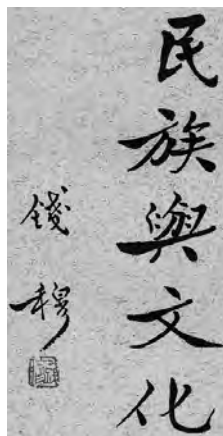 民族與文化
錢穆